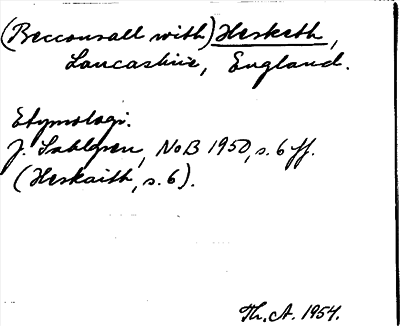 (Becconsall with) Hesketh,
Lancashire, England.
Etymologi.
J. Sahlgren, NoB 1950, s. 6 ff.
(Heskaith, s. 6).
Th. A. 1954.